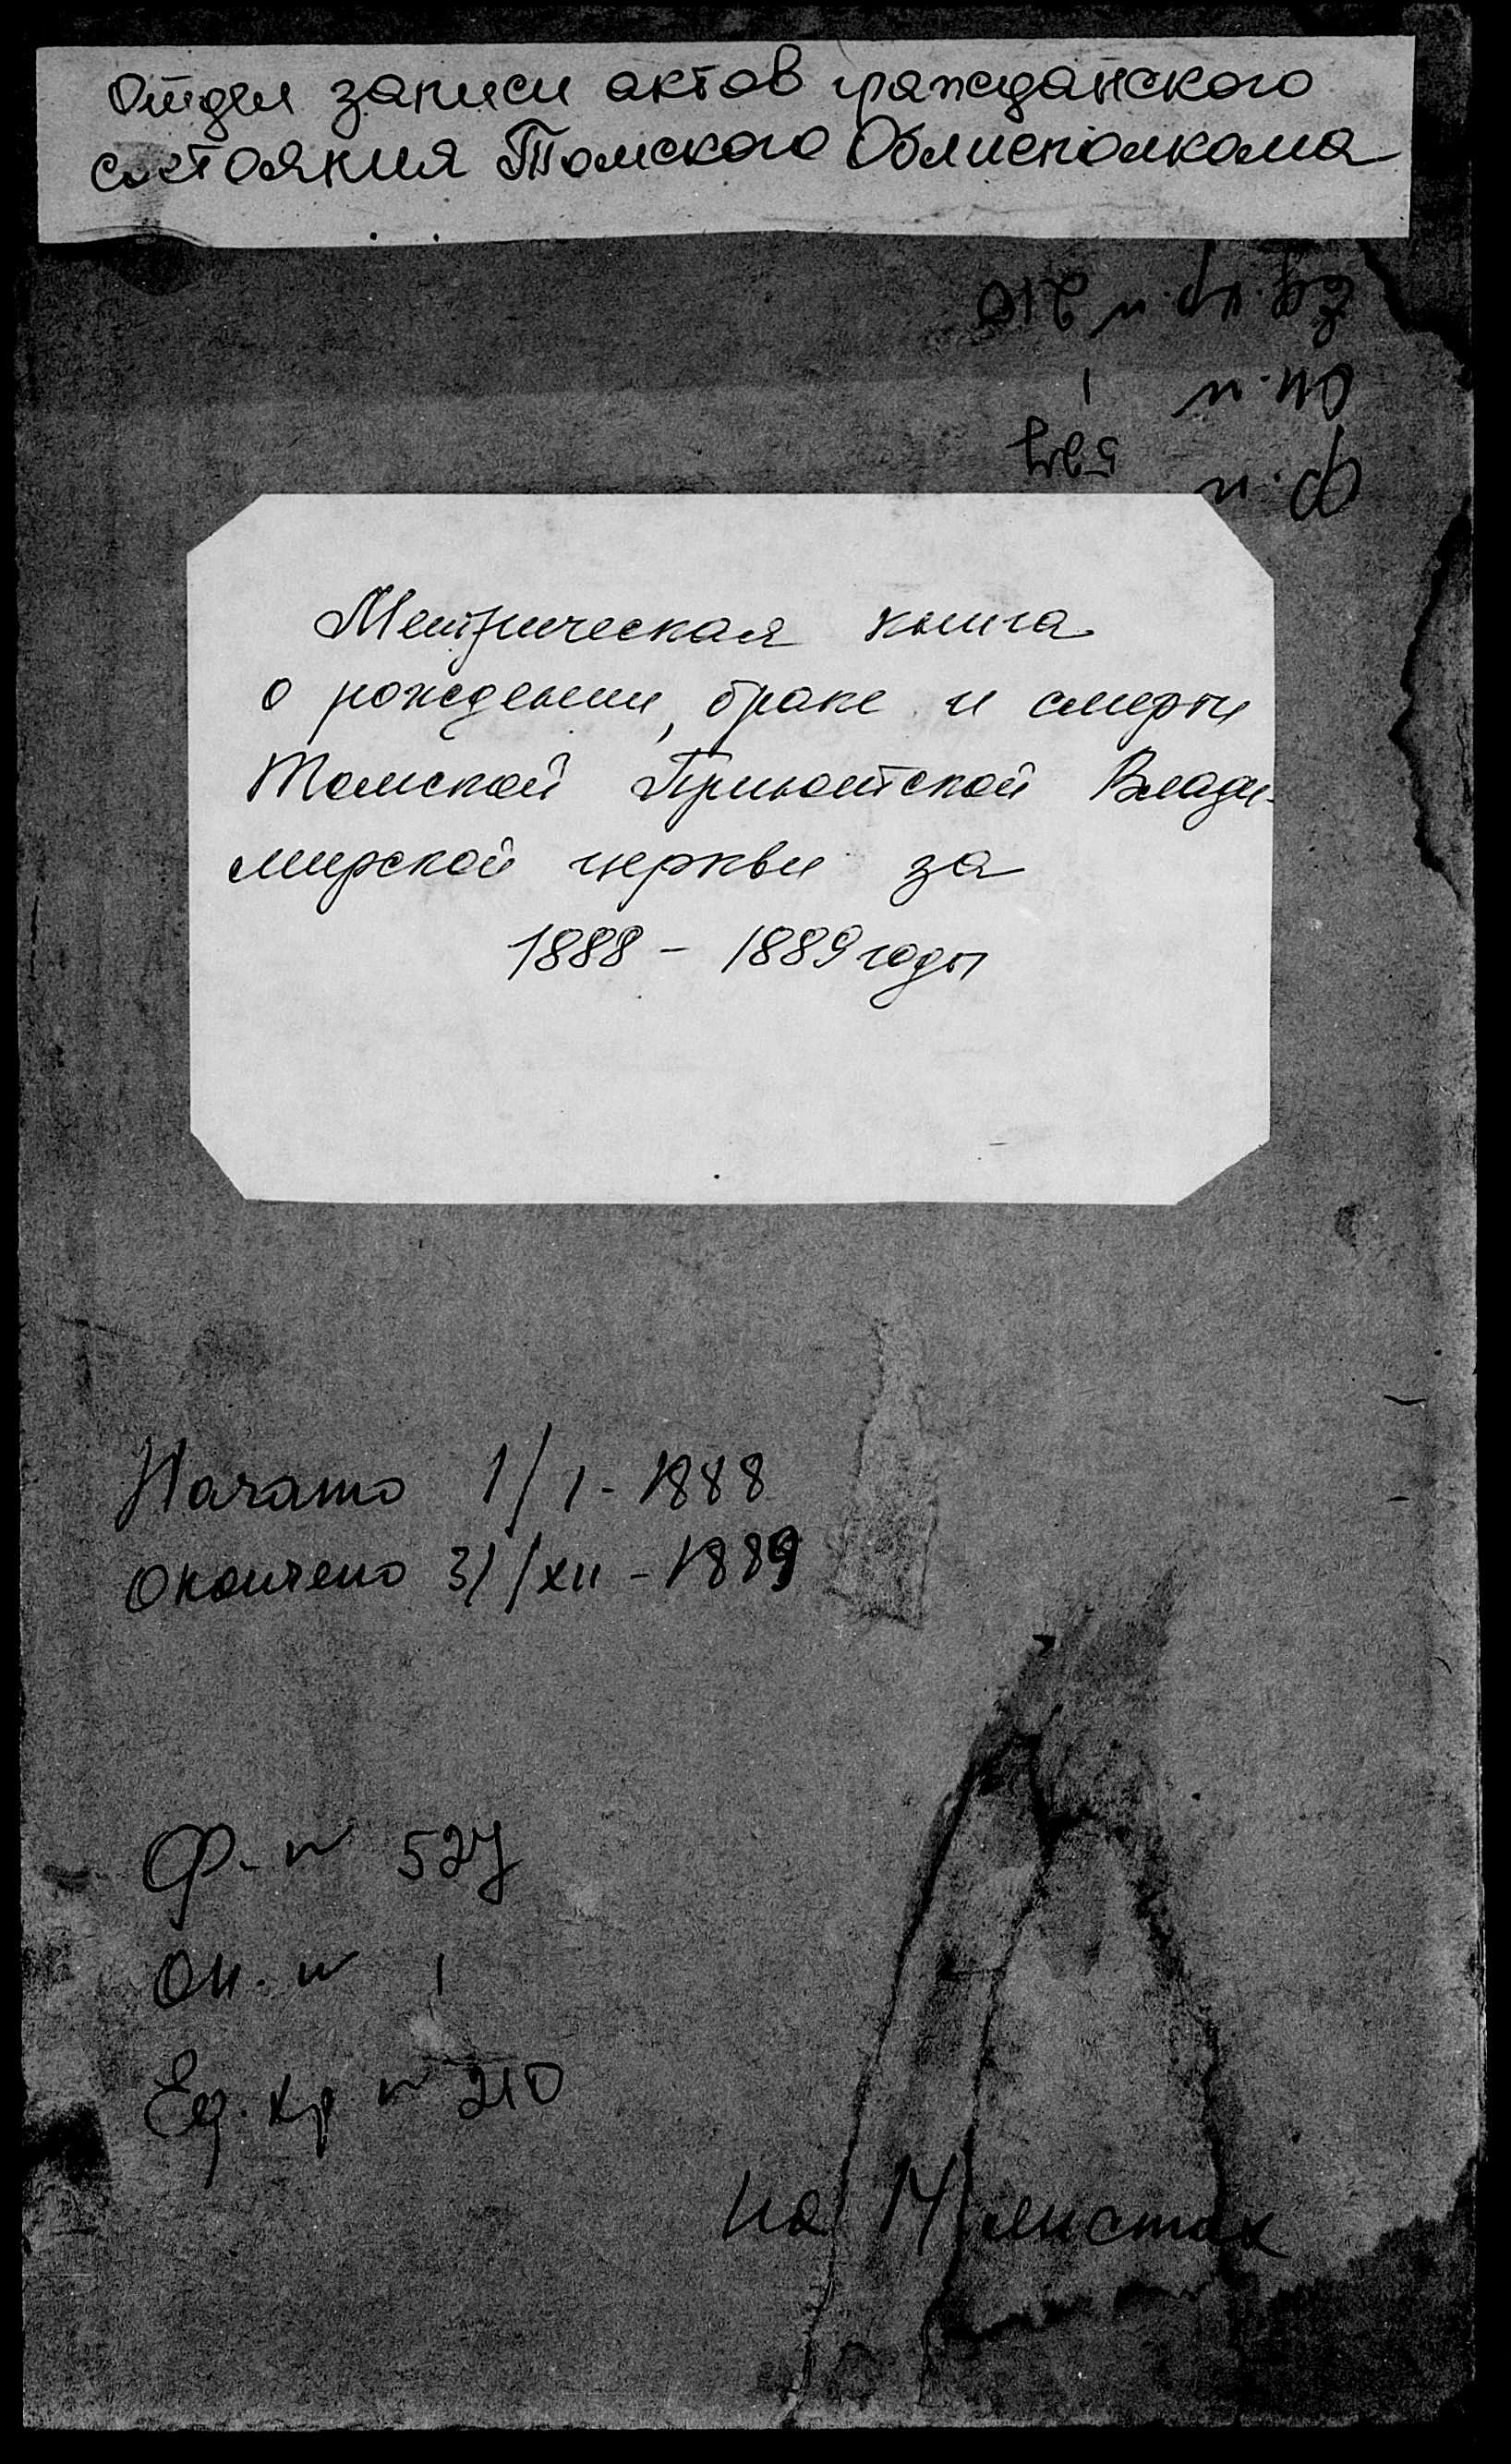 Отдел записи актов гражданского
состояния Томского Облисполкома
Ед. хр. № 210
Оп. № 1
Ф. № 527
Метрическая книга
о рождении, браке и смерти
Томской Приютской Влади-
мирской церкви за
1888 - 1889 годы
Начато 1/I - 1888
Окончено 31/XII - 1889
Ф. № 527
Оп. № 1
Ед. хр № 210
на 14 листах